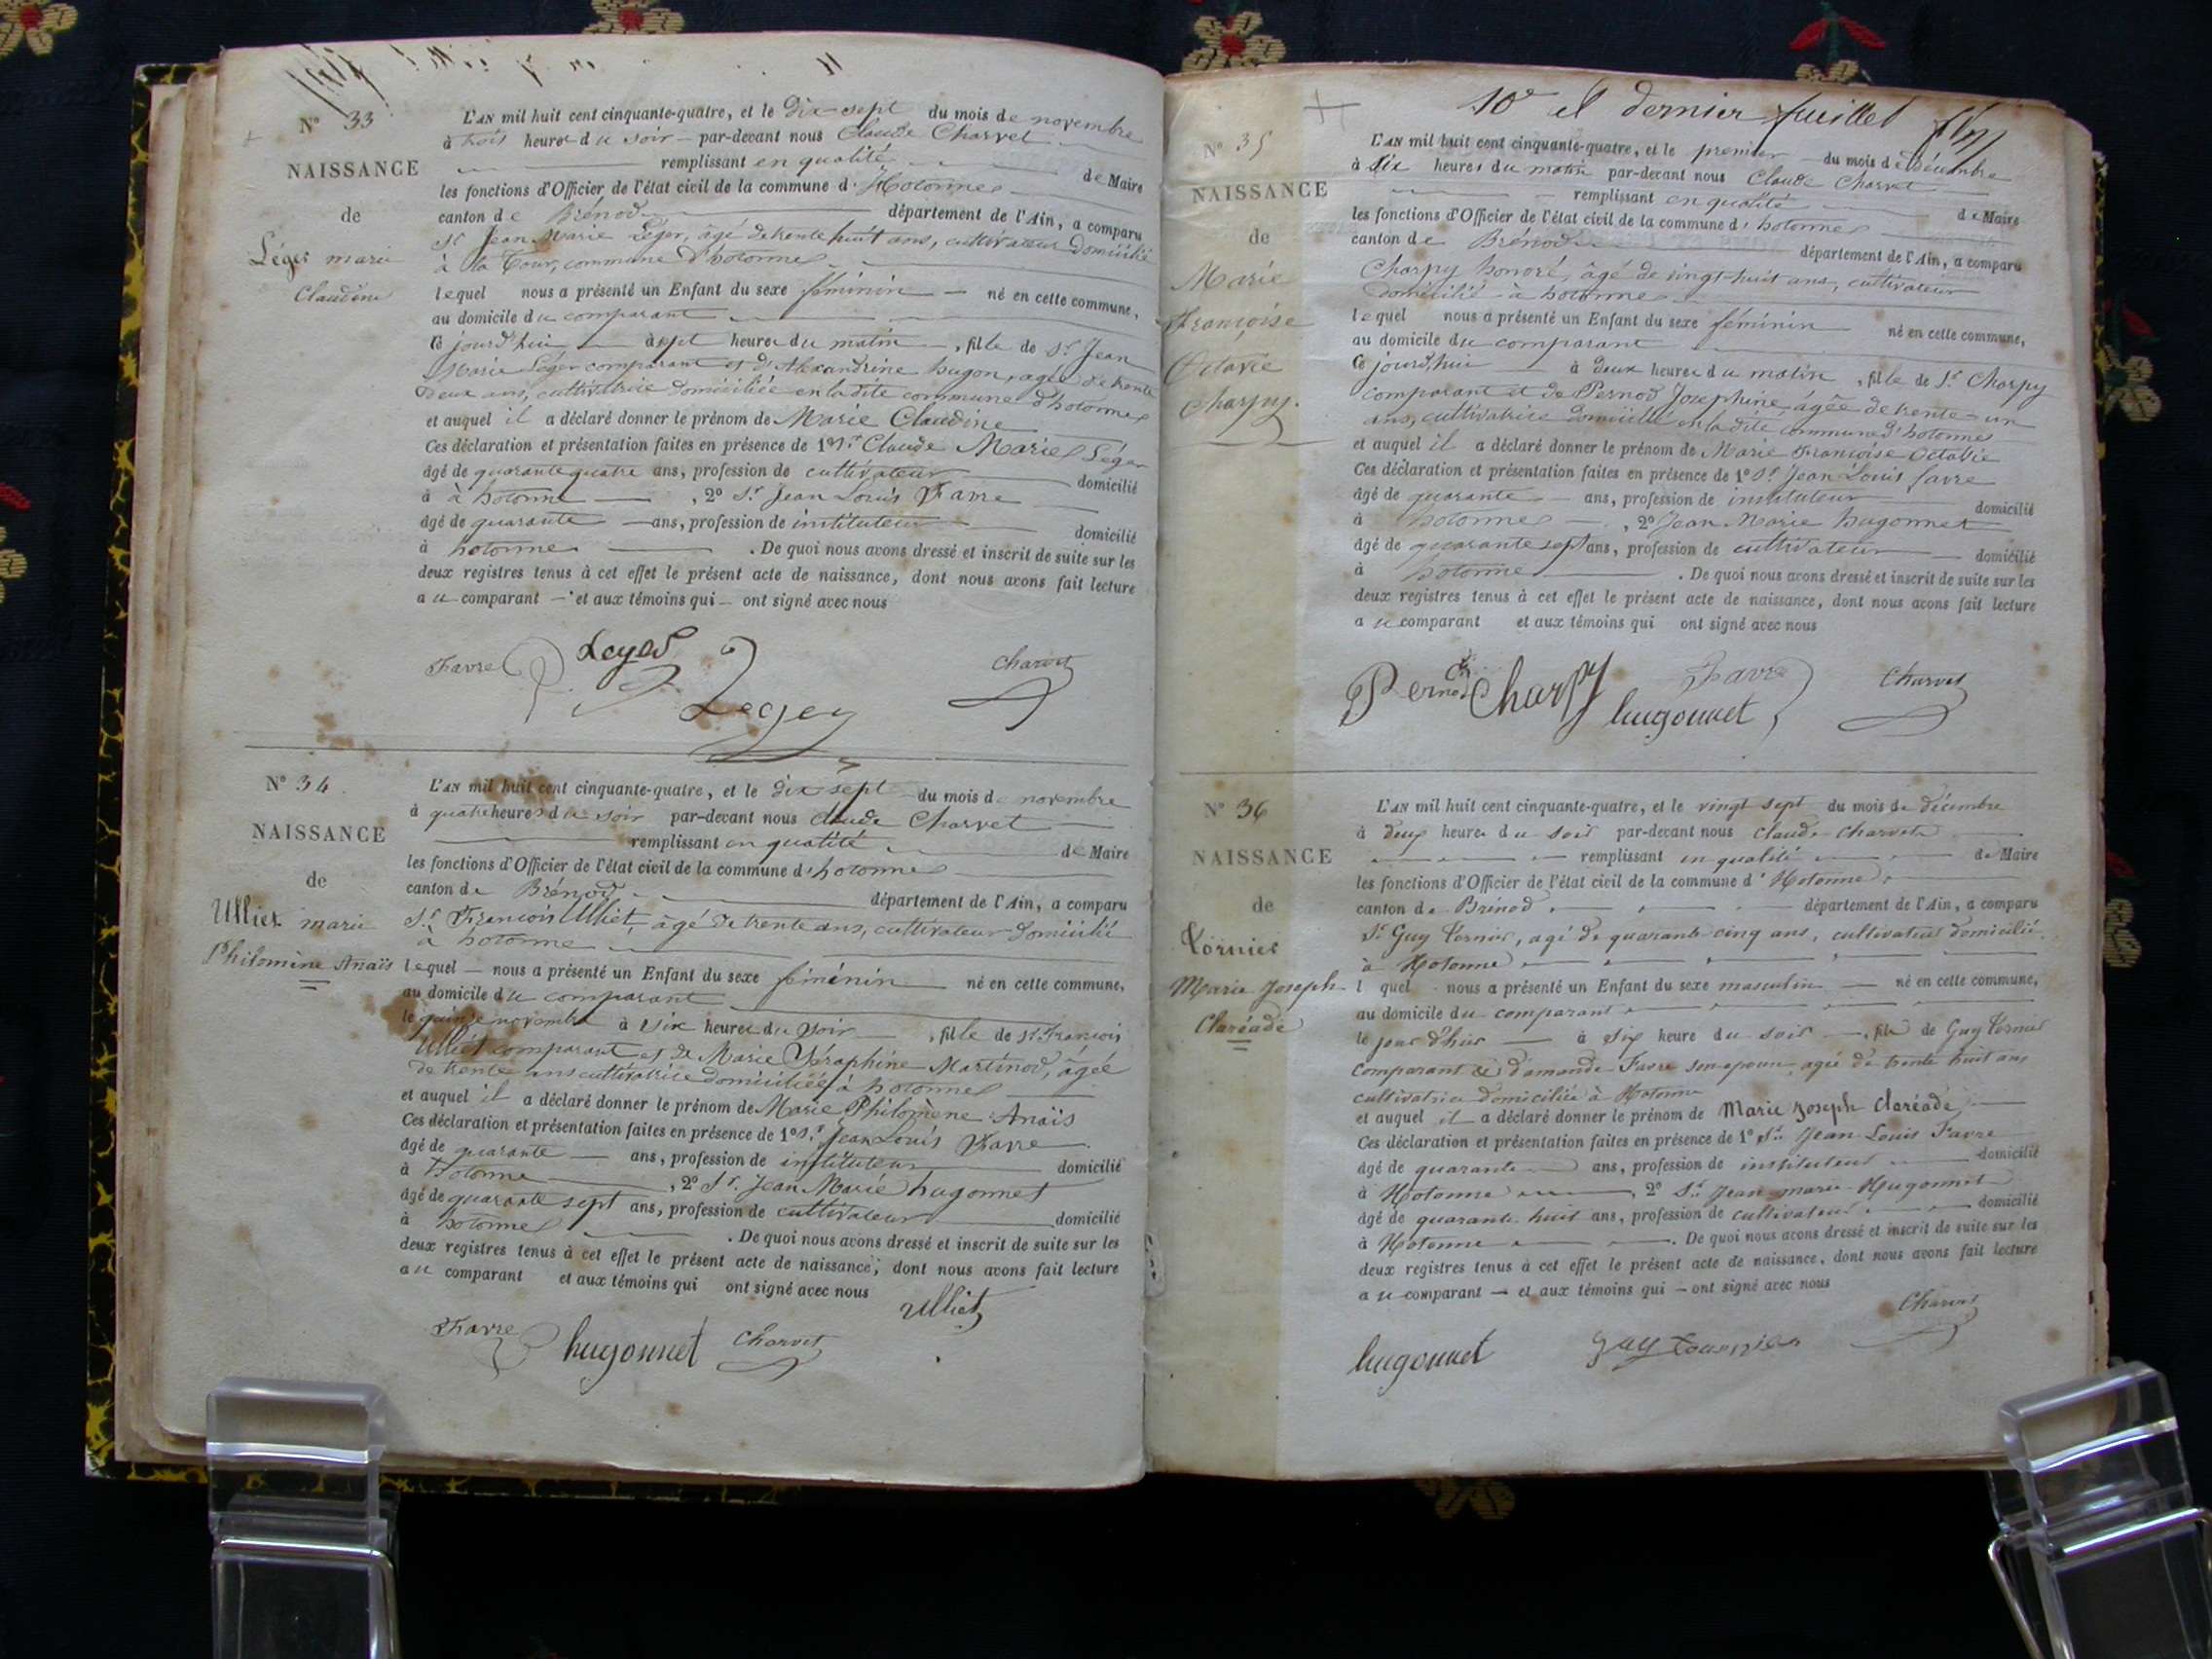 N° 33
NAISSANCE
de
Léger marie
Claudine
L'AN mil huit cent cinquante-quatre, et le dix sept du mois de novembre
à trois heures du soir par-devant nous Claude Charvet
remplissant en qualité de Maire
les fonctions d'Officier de l'état civil de la commune d'Hotonnes
canton de Brénod département de l'Ain, a comparu
Sr Jean Marie Léger, âgé de trente huit ans, cultivateur domicilié
à la Cour, commune d'hotonnes
lequel nous a présenté un Enfant du sexe féminin né en cette commune,
au domicile du comparant
ce jourd'hui à sept heures du matin, fille de Sr Jean
Marie Léger comparant et d'Alexandrine hugon, agée de trente
deux ans, cultivatrice domiciliée en la dite commune d'hotonnes
et auquel il a déclaré donner le prénom de Marie Claudine
Ces déclaration et présentation faites en présence de 1° Sr Claude Marie Léger
âgé de quarante quatre ans, profession de cultivateur domicilié
à à hotonne, 2° Sr Jean Louis Favre
âgé de quarante ans, profession de instituteur domicilié
à hotonnes. De quoi nous avons dressé et inscrit de suite sur les
deux registres tenus à cet effet le présent acte de naissance, dont nous avons fait lecture
au comparant et aux témoins qui ont signé avec nous
Favre Leger Charvet
Leger
N° 34
NAISSANCE
de
Ulliet marie
Philomène Anaïs
L'AN mil huit cent cinquante-quatre, et le dix sept du mois de novembre
à quatre heures du soir par-devant nous Claude Charvet
remplissant en qualité de Maire
les fonctions d'Officier de l'état civil de la commune d'hotonnes
canton de Brénod département de l'Ain, a comparu
Sr François Ulliet, âgé de trente ans, cultivateur domicilié
à hotonne
lequel nous a présenté un Enfant du sexe féminin né en cette commune,
au domicile du comparant
le quinze novembre à six heures du soir, fille de Sr François
Ulliet comparant et de Marie Séraphine Martinod, âgée
de trente ans cultivatrice domiciliée à hotonnes
et auquel il a déclaré donner le prénom de Marie Philomène Anaïs
Ces déclaration et présentation faites en présence de 1° Sr Jean Louis Favre
âgé de quarante ans, profession de instituteur domicilié
à hotonne, 2° Sr. Jean Marie hugonnet
âgé de quarante sept ans, profession de cultivateur domicilié
à hotonnes. De quoi nous avons dressé et inscrit de suite sur les
deux registres tenus à cet effet le présent acte de naissance, dont nous avons fait lecture
au comparant et aux témoins qui ont signé avec nous
Ulliet
Favre hugonnet Charvet
10e et dernier feuillet
N° 35
NAISSANCE
de
Marie
Françoise
Octavie
Charpy.
L'AN mil huit cent cinquante-quatre, et le premier du mois de Décembre
à dix heures du matin par-devant nous Claude Charvet
remplissant en qualité de Maire
les fonctions d'Officier de l'état civil de la commune d'hotonnes
canton de Brénod département de l'Ain, a comparu
Charpy honoré, âgé de vingt-huit ans, cultivateur
domicilié à hotonnes
lequel nous a présenté un Enfant du sexe féminin né en cette commune,
au domicile du comparant
ce jourd'hui à deux heures du matin, fille de Sr Charpy
comparant et de Pernod Josephine, âgée de trente-un
ans, cultivatrice domiciliée en la dite commune d'hotonnes
et auquel il a déclaré donner le prénom de Marie Françoise Octavie
Ces déclaration et présentation faites en présence de 1° Sr Jean Louis favre
âgé de quarante ans, profession de instituteur domicilié
à hotonnes, 2° Jean Marie hugonnet
âgé de quarante sept ans, profession de cultivateur domicilié
à hotonne. De quoi nous avons dressé et inscrit de suite sur les
deux registres tenus à cet effet le présent acte de naissance, dont nous avons fait lecture
au comparant et aux témoins qui ont signé avec nous
Pernod Charpy Favre Charvet
hugonnet
N° 36
NAISSANCE
de
Tornier
Marie Joseph
Claréade
L'AN mil huit cent cinquante-quatre, et le vingt sept du mois de décembre
à deux heures du soir par-devant nous Claude Charvet
remplissant en qualité de Maire
les fonctions d'Officier de l'état civil de la commune d'Hotonne
canton de Brénod département de l'Ain, a comparu
Sr Guy Tornier, agé de quarante-cinq ans, cultivateur domicilié
à Hotonne
l quel nous a présenté un Enfant du sexe masculin né en cette commune,
au domicile du comparant
le jour d'hier à six heure du soir, fils de Guy Tornier
comparant & d'amande Favre son epouse, agée de trente huit ans
cultivatrice domiciliée à Hotonne
et auquel il a déclaré donner le prénom de Marie Joseph Claréade
Ces déclaration et présentation faites en présence de 1° Sr. Jean Louis Favre
âgé de quarante ans, profession de instituteur domicilié
à Hotonne, 2° Sr. Jean-marie Hugonnet
âgé de quarante huit ans, profession de cultivateur domicilié
à Hotonne. De quoi nous avons dressé et inscrit de suite sur les
deux registres tenus à cet effet le présent acte de naissance, dont nous avons fait lecture
au comparant et aux témoins qui ont signé avec nous
Charvet
hugonnet Guy Tournier